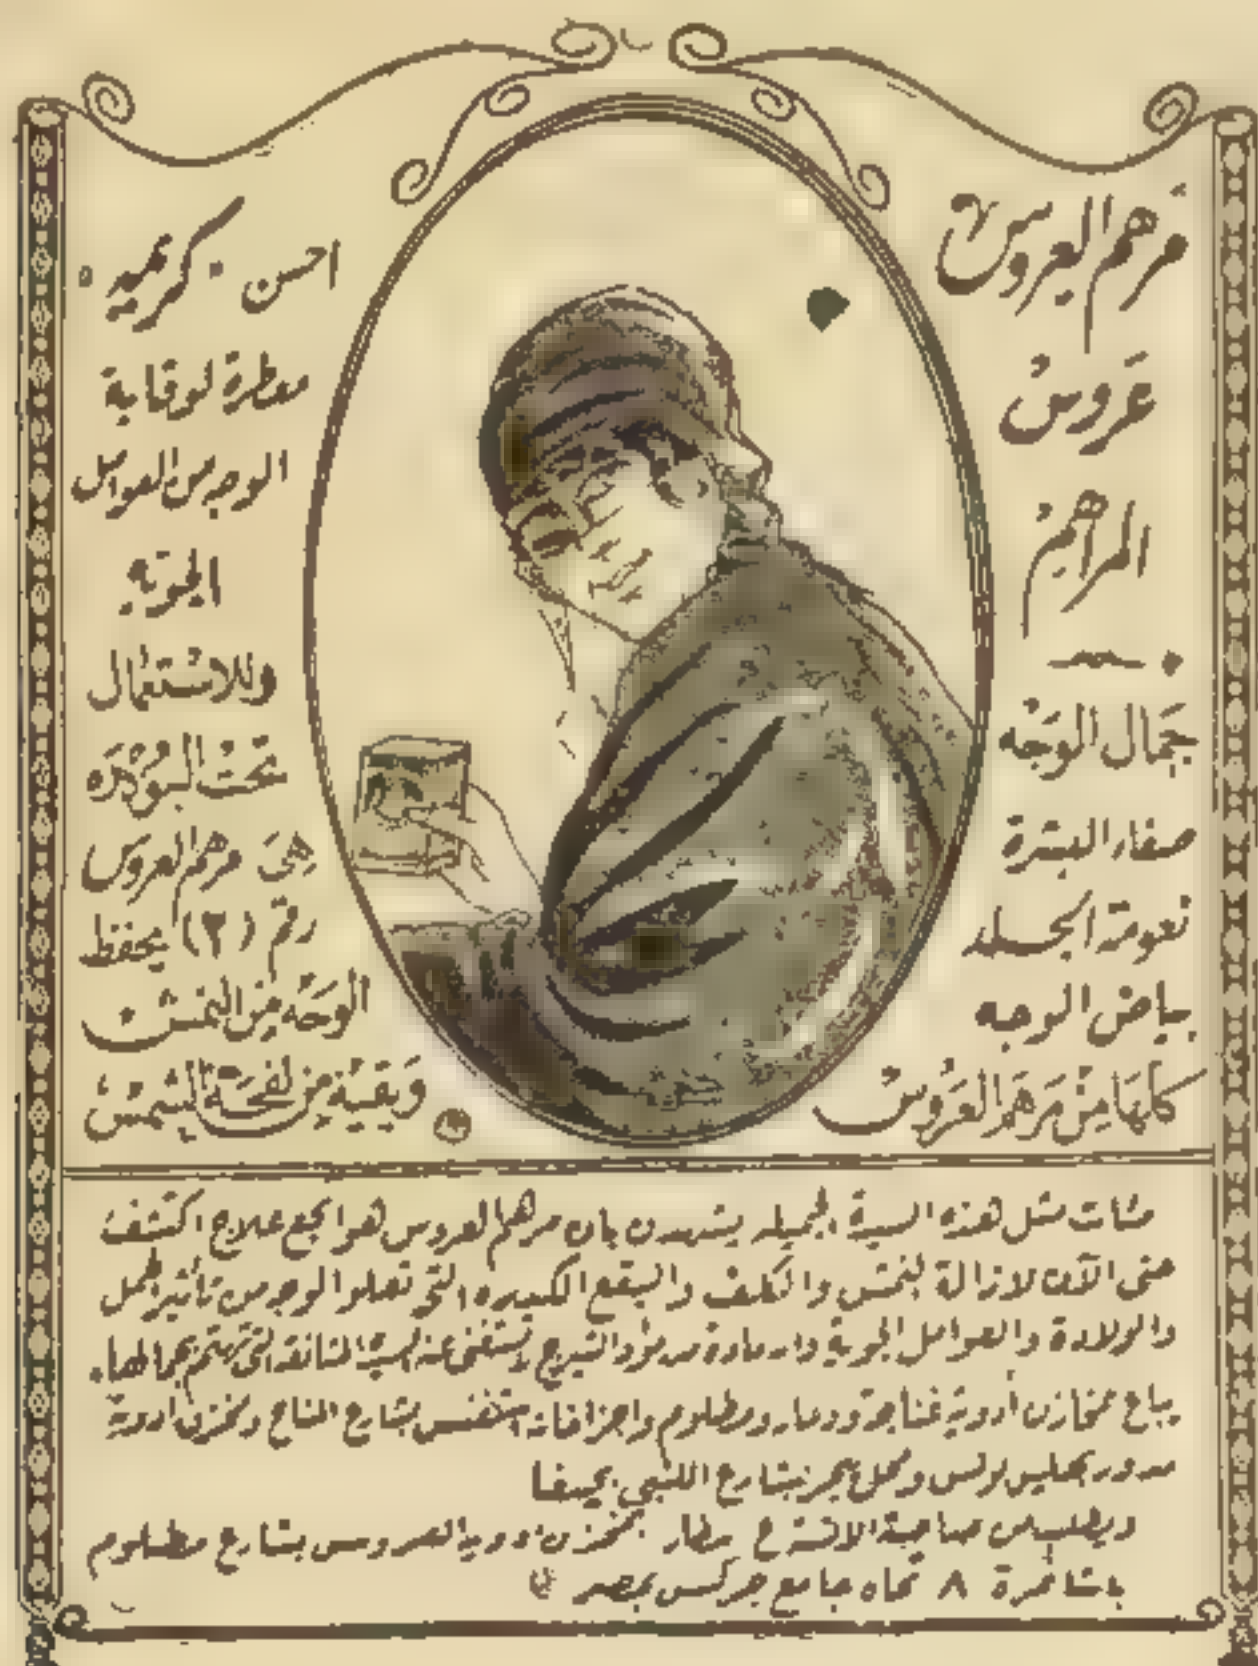 مرهم العروس
عروس
المراهم
جمال الوجه
صفاء البشرة
نعومة الجلد
بياض الوجه
كلها من مرهم العروس
احسن كريمه
معطرة لوقاية
الوجه من العوامل
الجوية
وللاستعمال
تحت البودره
هى مرهم العروس
رقم (٢) يحفظ
الوجه من النمش
ويقيه من لفحة الشمس
مئات مثل هذه السيدة الجميله يشهدن بان مرهم العروس هو انجع علاج اكتشف
حتى الآن لازالة النمش والكلف والبقع الكبيره التى تعلو الوجه من تأثير الحمل
والولادة والعوامل الجوية السيدة المتأنقة التى تهتم بجمالها.
يباع بمخازن أدوية غناجة ودمار ومظلوم واجزاخانة بشارع المناخ ومخزن ادوية
ومحل بشارع اللنبى بحيفا
ويطلب من صاحبة الاختراع بمخزن ادوية العروس بشارع مظلوم
باشا نمرة ٨ تجاه جامع جركس بمصر